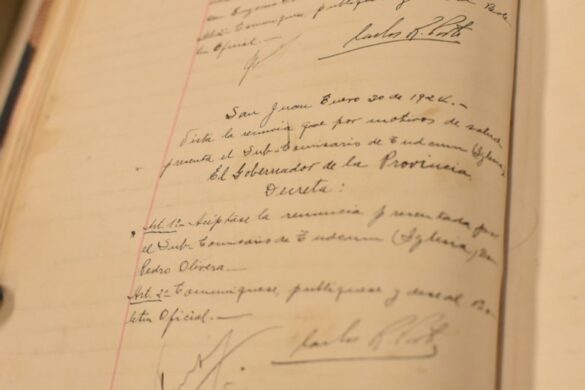 Comuníquese, publíquese y dese al Bole-
tin Oficial.—
Carlos R. Porto
San Juan Enero 30 de 1924.—
Vista la renuncia que por motivos de salud
presenta el Sub-Comisario de Tudcum (Iglesia)
El Gobernador de la Provincia
Decreta:
Art. 1º Acéptase la renuncia presentada por
el Sub-Comisario de Tudcum (Iglesia) Don
Pedro Olivera.—
Art. 2º Comuníquese, publíquese y dese al Bo-
letin Oficial.—
Carlos R. Porto